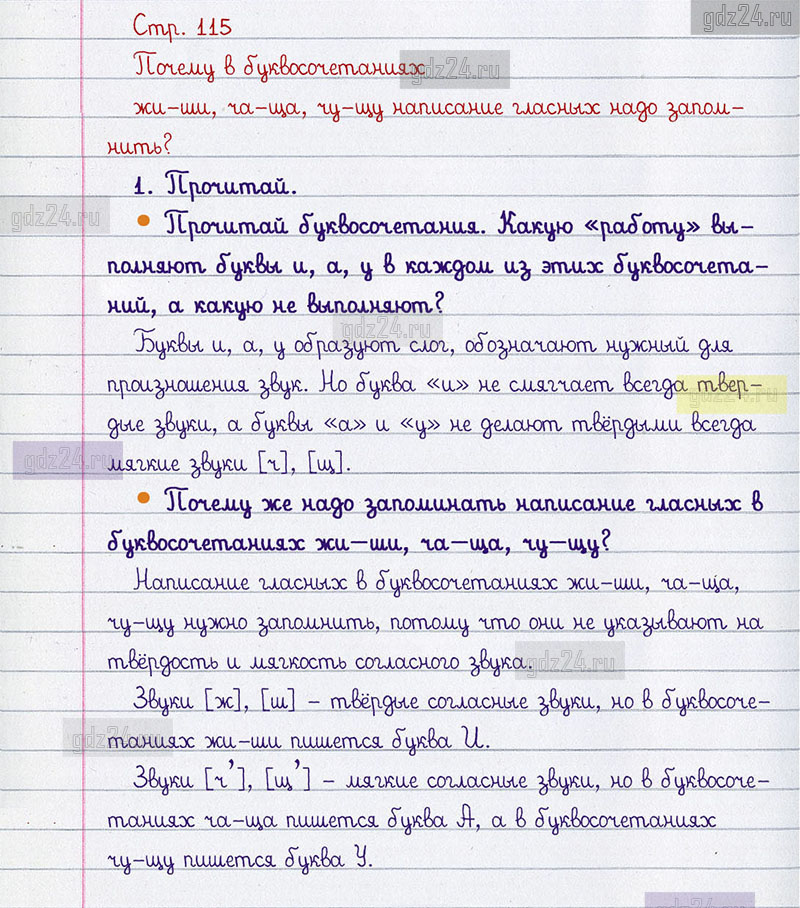 gdz24.ru
Стр. 115
Почему в буквосочетаниях
gdz24.ru
жи–ши, ча–ща, чу–щу написание гласных надо запом–
нить?
1. Прочитай.
gdz24.ru
• Прочитай буквосочетания. Какую «работу» вы–
полняют буквы и, а, у в каждом из этих буквосочета–
ний, а какую не выполняют?
gdz24.ru
Буквы и, а, у образуют слог, обозначают нужный для
произношения звук. Но буква «и» не смягчает всегда твер–
gdz24.ru
дые звуки, а буквы «а» и «у» не делают твёрдыми всегда
gdz24.ru
мягкие звуки [ч], [щ].
• Почему же надо запоминать написание гласных в
буквосочетаниях жи–ши, ча–ща, чу–щу?
Написание гласных в буквосочетаниях жи–ши, ча–ща,
чу–щу нужно запомнить, потому что они не указывают на
твёрдость и мягкость согласного звука.
gdz24.ru
Звуки [ж], [ш] – твёрдые согласные звуки, но в буквосоче–
gdz24.ru
таниях жи–ши пишется буква И.
Звуки [ч’], [щ’] – мягкие согласные звуки, но в буквосоче–
таниях ча–ща пишется буква А, а в буквосочетаниях
чу–щу пишется буква У.
gdz24.ru